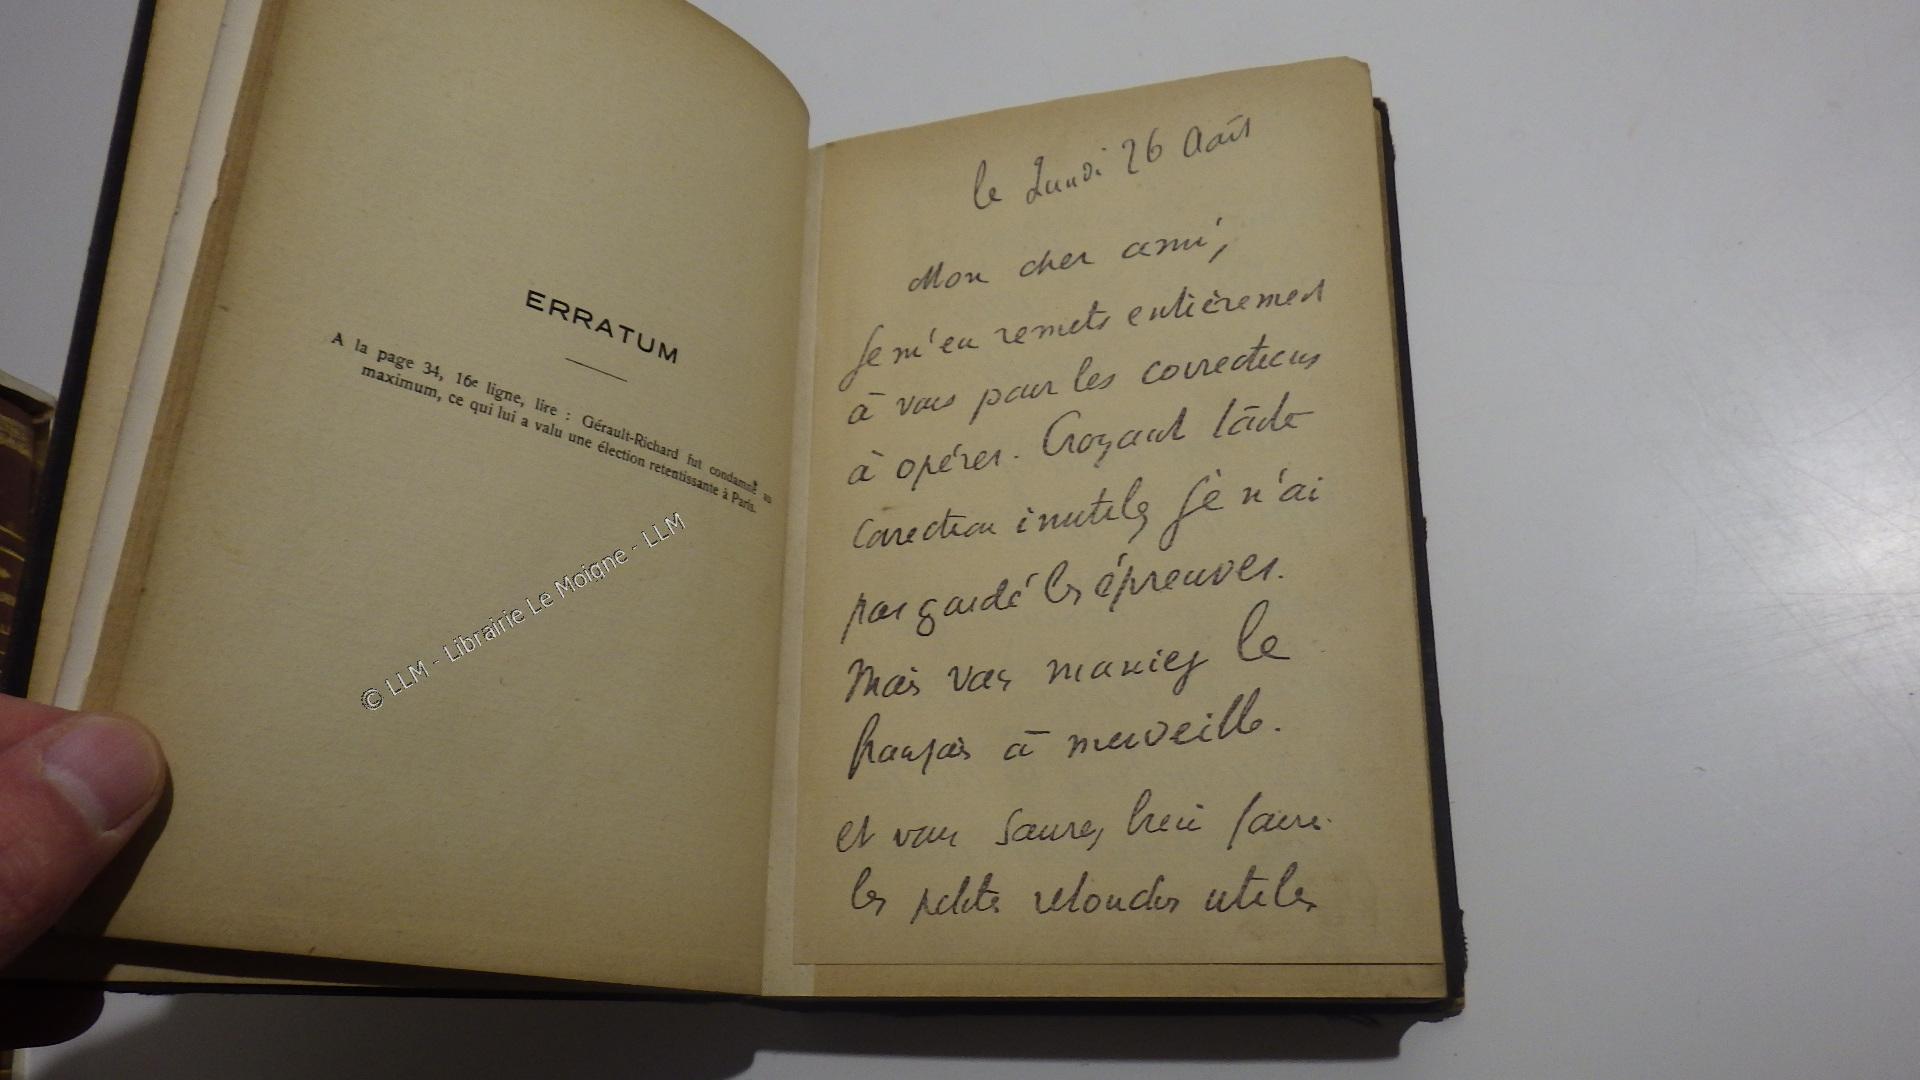 ERRATUM
A la page 34, 16e ligne, lire : Gérault-Richard fut condamné au
maximum, ce qui lui a valu une élection retentissante à Paris.
© LLM - Librairie Le Moigne - LLM
le Lundi 26 Août
Mon cher ami,
Je m'en remets entièrement
à vous pour les corrections
à opérer. Croyant
correction inutile, je n'ai
pas gardé les épreuves.
Mais vous maniez le
français à merveille.
et vous saurez bien faire
les petites retouches utiles